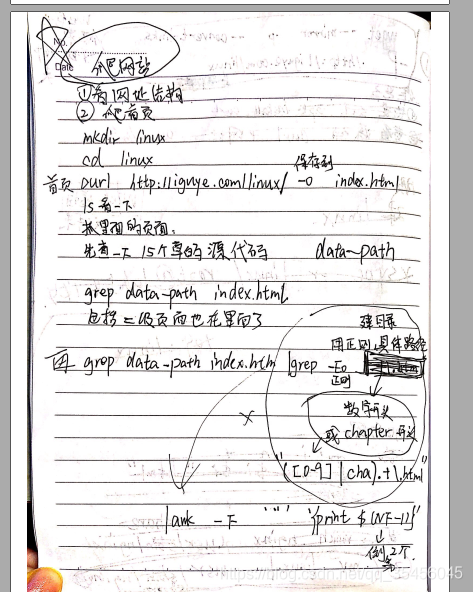 No.
Date
爬网站
①看网址结构
② 爬首页
mkdir linux
cd linux
保存到
首页 curl http://iguye.com/linux/ -o index.html
ls看一下
抓里面的页面,
先看一下 15个章的源代码 data-path
grep data-path index.html
包括二级页面也在里面了
建目录
用正则,具体路径
再 grep data-path index.htm |grep -Eo
正则
数字开头
或 chapter 开头
"([0-9]|cha).+\.html"
|awk -F "" '{print $(NF-1)}'
倒2个
https://blog.csdn.net/